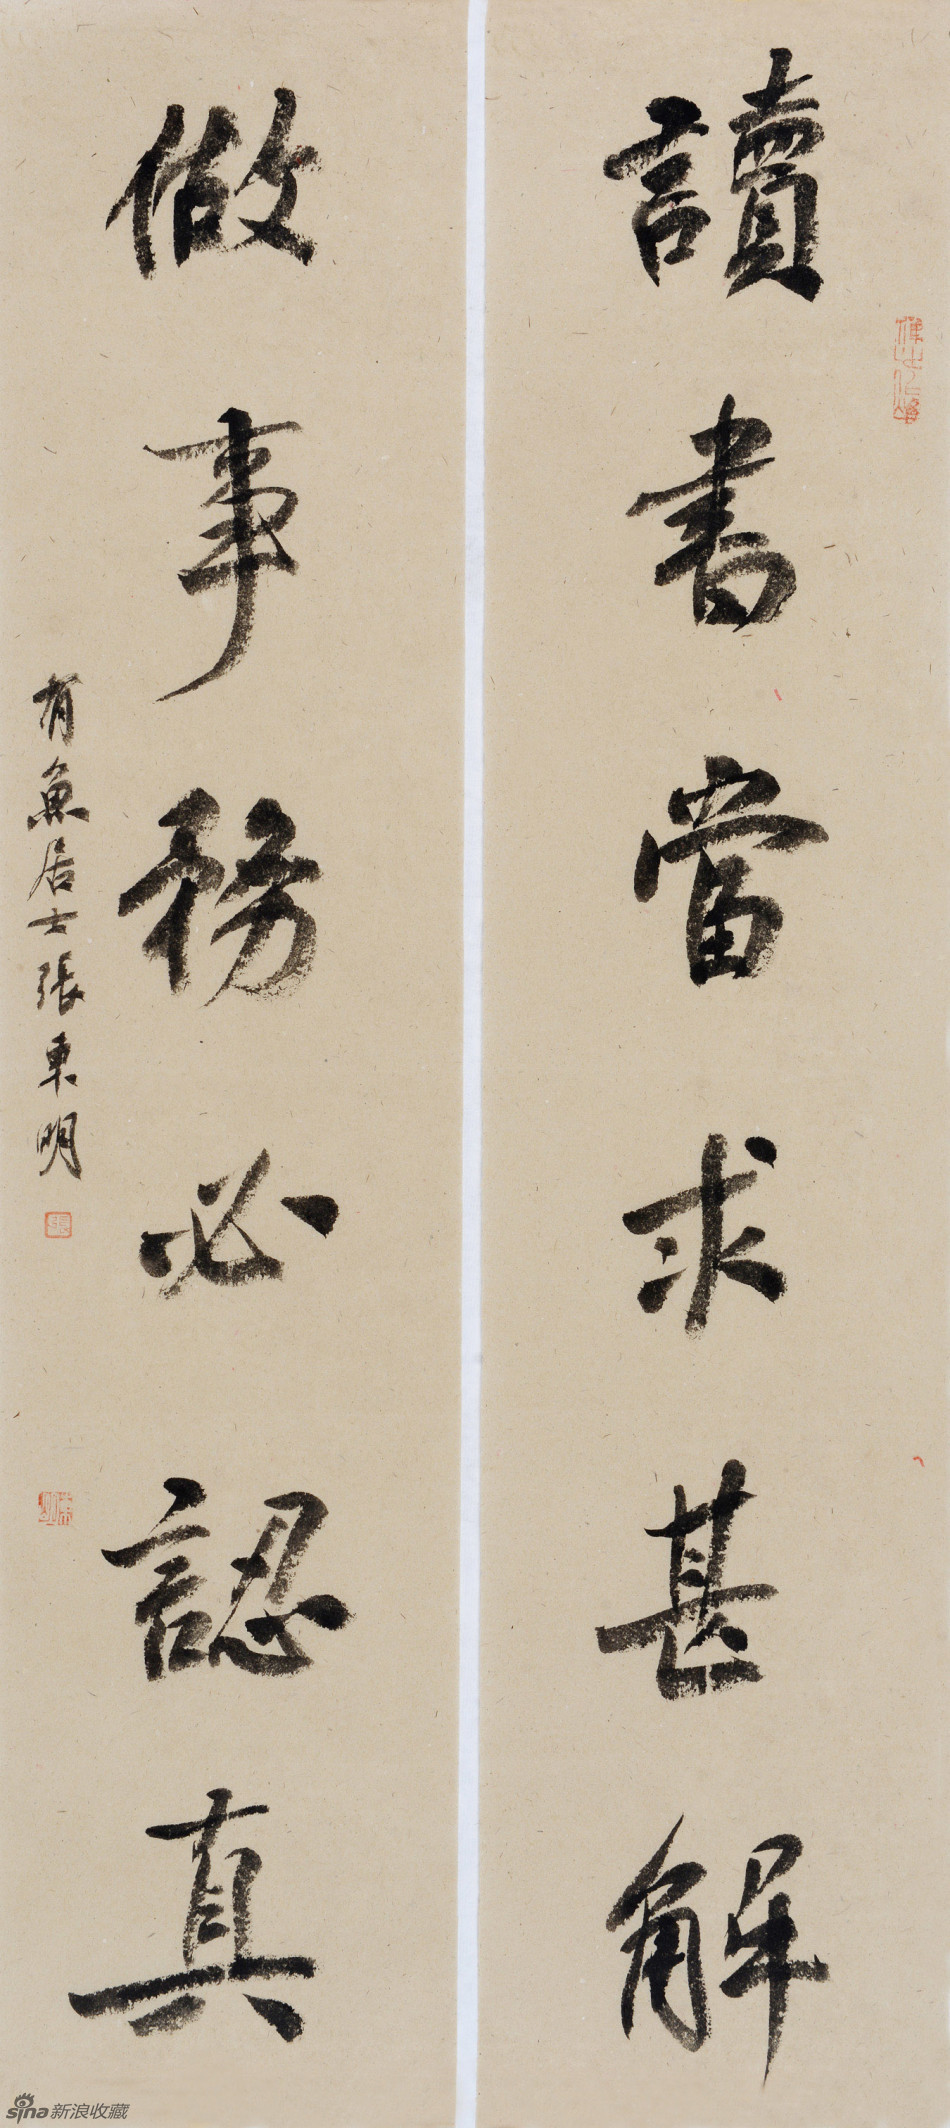 讀書當求甚解
做事務必認真
有魚居士張東明
張
東明
sina新浪收藏